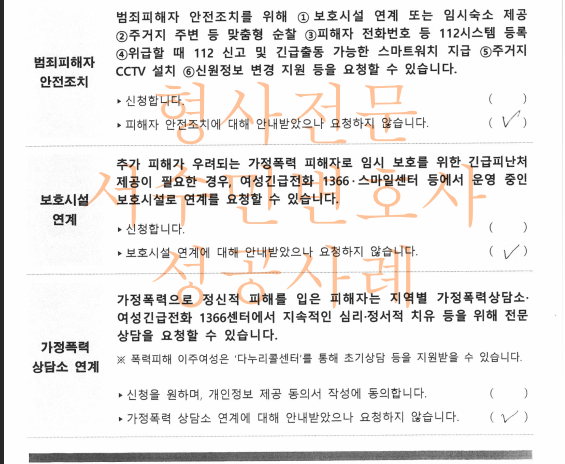 범죄피해자
안전조치
범죄피해자 안전조치를 위해 ①보호시설 연계 또는 임시숙소 제공
②주거지 주변 등 맞춤형 순찰 ③피해자 전화번호 등 112시스템 등록
④위급할 때 112 신고 및 긴급출동 가능한 스마트워치 지급 ⑤주거지
CCTV 설치 ⑥신원정보 변경 지원 등을 요청할 수 있습니다.
▸신청합니다. ( )
▸피해자 안전조치에 대해 안내받았으나 요청하지 않습니다. ( ✓ )
보호시설
연계
추가 피해가 우려되는 가정폭력 피해자로 임시 보호를 위한 긴급피난처
제공이 필요한 경우, 여성긴급전화 1366·스마일센터 등에서 운영 중인
보호시설로 연계를 요청할 수 있습니다.
▸신청합니다. ( )
▸보호시설 연계에 대해 안내받았으나 요청하지 않습니다. ( ✓ )
가정폭력
상담소 연계
가정폭력으로 정신적 피해를 입은 피해자는 지역별 가정폭력상담소·
여성긴급전화 1366센터에서 지속적인 심리·정서적 치유 등을 위해 전문
상담을 요청할 수 있습니다.
※ 폭력피해 이주여성은 '다누리콜센터'를 통해 초기상담 등을 지원받을 수 있습니다.
▸신청을 원하며, 개인정보 제공 동의서 작성에 동의합니다. ( )
▸가정폭력 상담소 연계에 대해 안내받았으나 요청하지 않습니다. ( ✓ )
형사전문
서수민변호사
성공사례